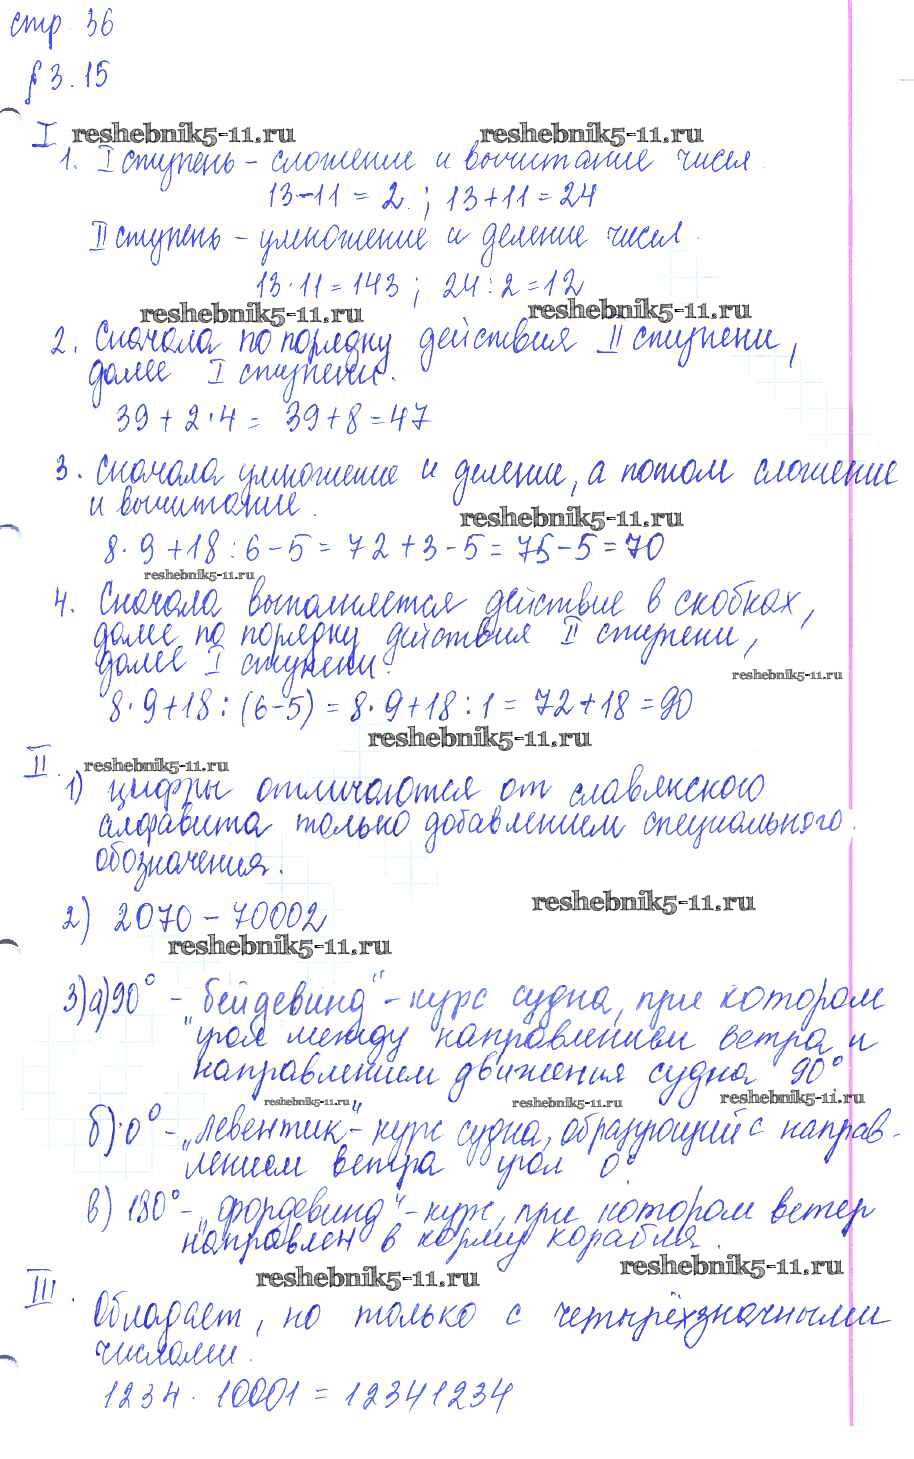 стр. 36
§ 3.15
I reshebnik5-11.ru reshebnik5-11.ru
1. I ступень – сложение и вычитание чисел.
13-11 = 2. ; 13+11 = 24
II ступень – умножение и деление чисел.
13·11 = 143 ; 24:2=12
reshebnik5-11.ru reshebnik5-11.ru
2. Сначала по порядку действия II ступени,
далее I ступени.
39 + 2·4 = 39+8=47
3. Сначала умножение и деление, а потом сложение
и вычитание.
reshebnik5-11.ru
8·9+18:6-5=72+3-5=75-5=70
reshebnik5-11.ru
4. Сначала выполняется действие в скобках,
далее по порядку действия II ступени,
далее I ступени.
reshebnik5-11.ru
8·9+18:(6-5)=8·9+18:1=72+18=90
reshebnik5-11.ru
II. reshebnik5-11.ru
1) цифры отличаются от славянского
алфавита только добавлением специального.
обозначения.
reshebnik5-11.ru
2) 2070 – 70002
reshebnik5-11.ru
3) а) 90° – "бейдевинд" – курс судна, при котором
угол между направлением ветра и
направлением движения судна 90°
reshebnik5-11.ru reshebnik5-11.ru reshebnik5-11.ru
б)·0° – „левентик" – курс судна, образующий с направ-
лением ветра угол 0°.
в) 180° – „фордевинд" – курс, при котором ветер
направлен в корму корабля.
reshebnik5-11.ru reshebnik5-11.ru
III.
Обладает, но только с четырёхзначными
числами.
1234 · 10001 = 12341234